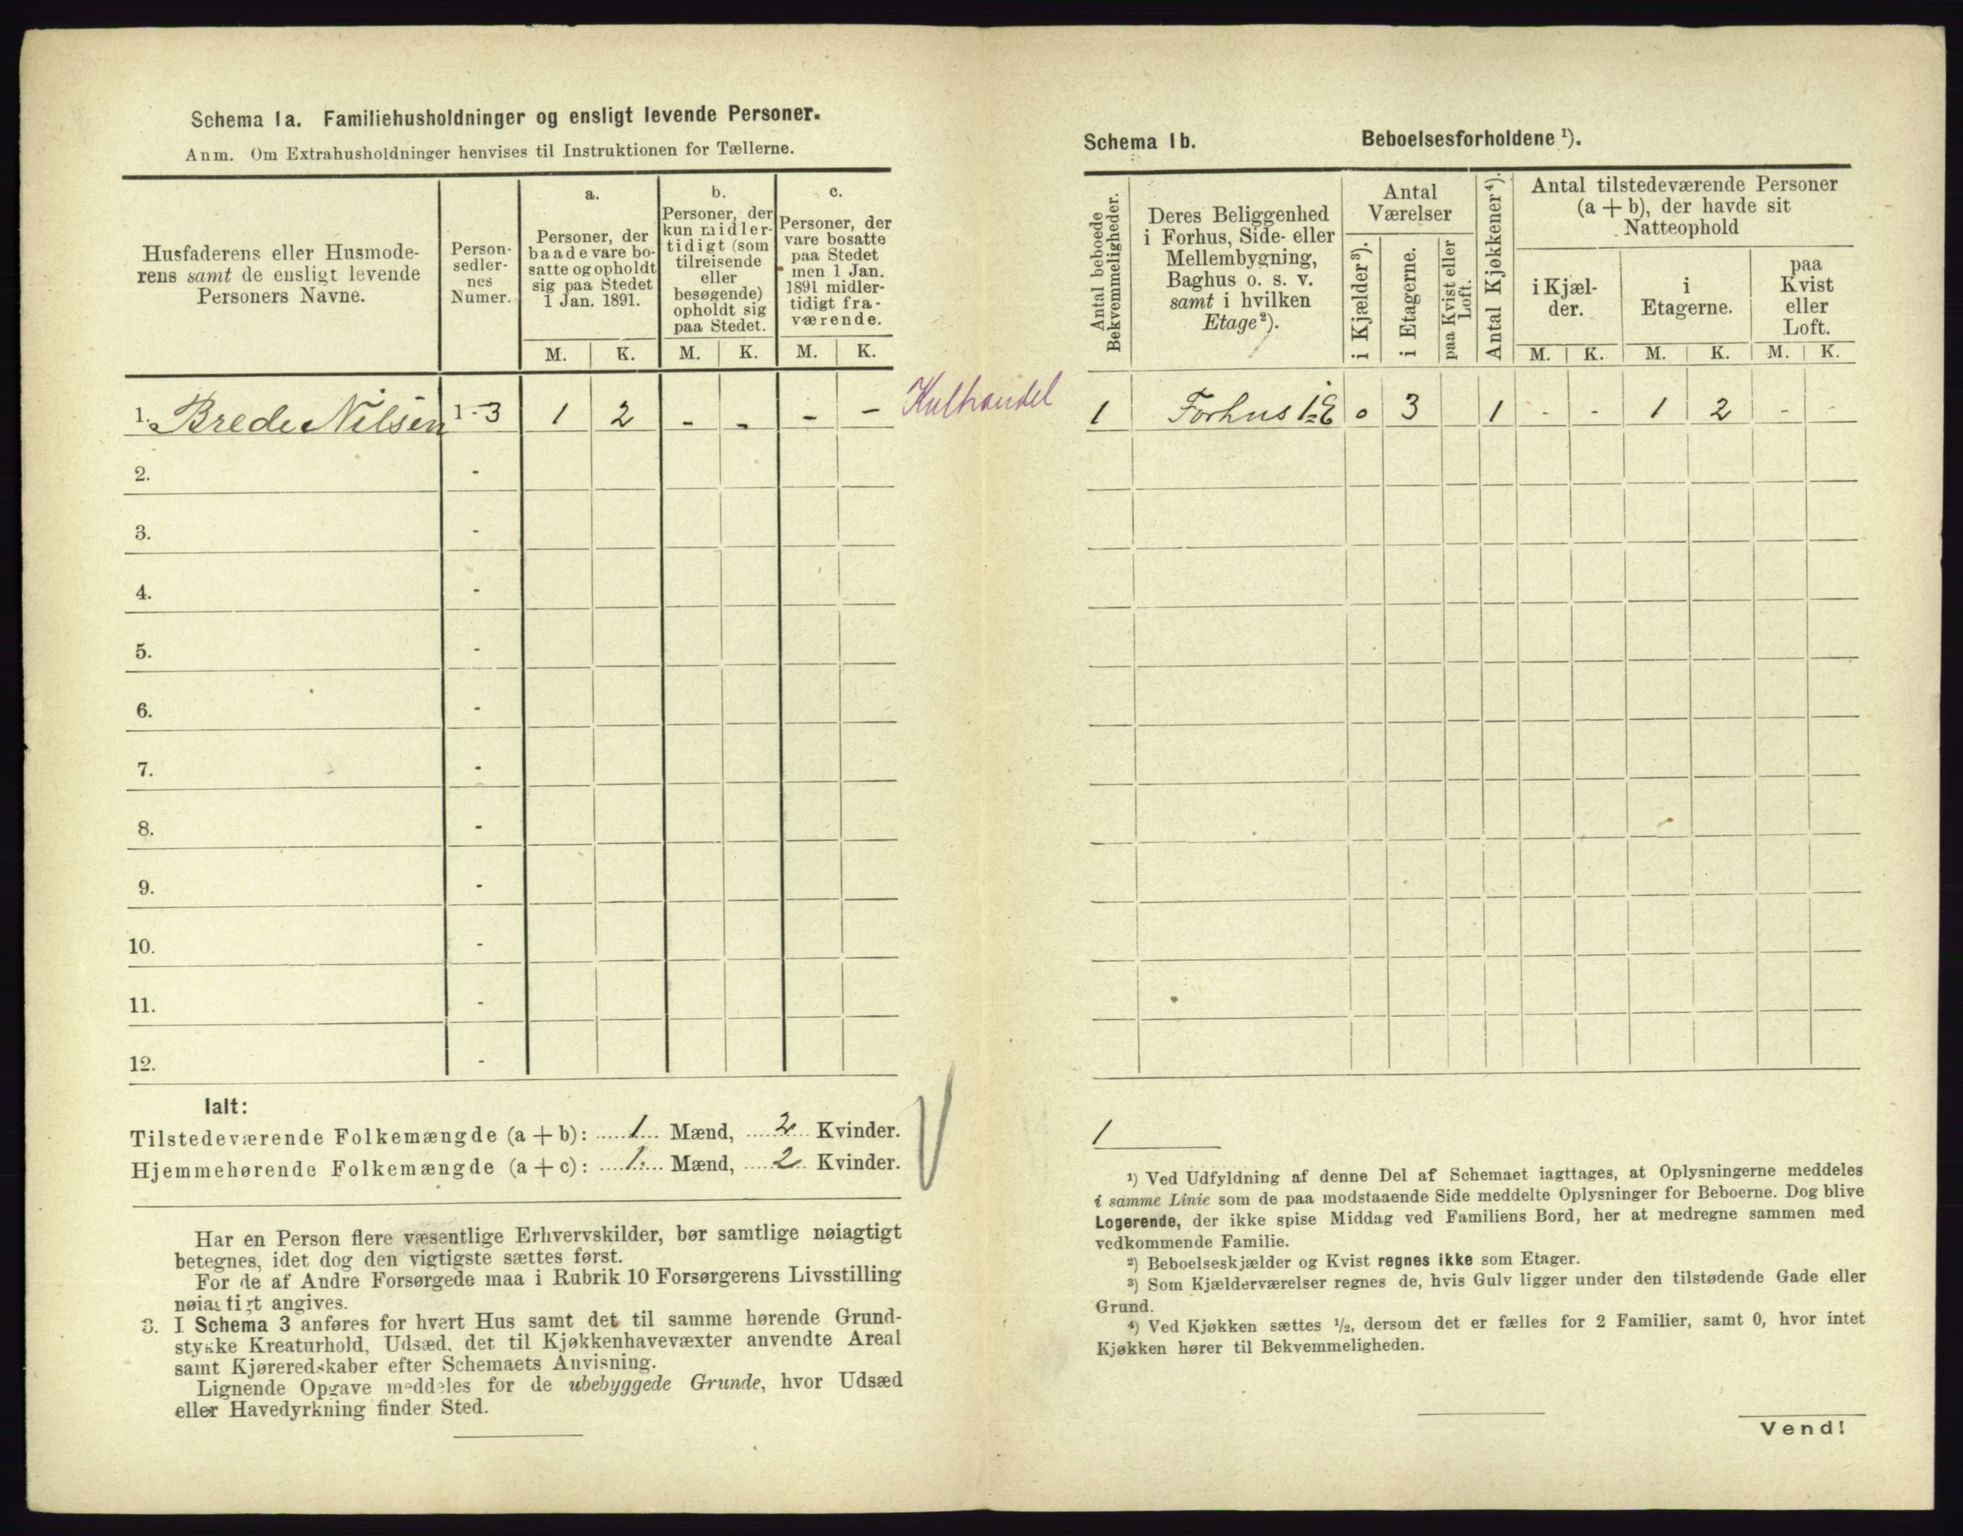 Schema 1a. Familiehusholdninger og ensligt levende Personer.
Anm. Om Extrahusholdninger henvises til Instruktionen for Tællerne.
Husfaderens eller Husmode-
rens samt de ensligt levende
Personers Navne.
Person-
sedler-
nes
Numer.
a.
Personer, der
baade vare bo-
satte og opholdt
sig paa Stedet
1 Jan. 1891.
b.
Personer, der
kun midler-
tidigt (som
tilreisende
eller
besøgende)
opholdt sig
paa Stedet.
c.
Personer, der
vare bosatte
paa Stedet
men 1 Jan.
1891 midler-
tidigt fra-
værende.
M. K. M. K. M. K.
1. Brede Nilsen 1-3 1 2 - - - - Kulhandel
2. -
3. -
4. -
5. -
6. -
7. -
8. -
9. -
10. -
11. -
12. -
Ialt:
Tilstedeværende Folkemængde (a + b): 1 Mænd, 2 Kvinder.
Hjemmehørende Folkemængde (a + c): 1 Mænd, 2 Kvinder.
Har en Person flere væsentlige Erhvervskilder, bør samtlige nøiagtigt
betegnes, idet dog den vigtigste sættes først.
For de af Andre Forsørgede maa i Rubrik 10 Forsørgerens Livsstilling
nøiagtigt angives.
3. I Schema 3 anføres for hvert Hus samt det til samme hørende Grund-
stykke Kreaturhold, Udsæd, det til Kjøkkenhavevæxter anvendte Areal
samt Kjøreredskaber efter Schemaets Anvisning.
Lignende Opgave meddeles for de ubebyggede Grunde, hvor Udsæd
eller Havedyrkning finder Sted.
Schema 1b. Beboelsesforholdene ¹).
Antal beboede
Bekvemmeligheder.
Deres Beliggenhed
i Forhus, Side- eller
Mellembygning,
Baghus o. s. v.
samt i hvilken
Etage²).
Antal
Værelser
i Kjælder³).
i Etagerne.
paa Kvist eller
Loft.
Antal Kjøkkener⁴).
Antal tilstedeværende Personer
(a + b), der havde sit
Natteophold
i Kjæl-
der.
i
Etagerne.
paa
Kvist
eller
Loft.
M. K. M. K. M. K.
1 Forhus 1 E 0 3 1 - - 1 2 - -
1
¹) Ved Udfyldning af denne Del af Schemaet iagttages, at Oplysningerne meddeles
i samme Linie som de paa modstaaende Side meddelte Oplysninger for Beboerne. Dog blive
Logerende, der ikke spise Middag ved Familiens Bord, her at medregne sammen med
vedkommende Familie.
²) Beboelseskjælder og Kvist regnes ikke som Etager.
³) Som Kjælderværelser regnes de, hvis Gulv ligger under den tilstødende Gade eller
Grund.
⁴) Ved Kjøkken sættes ½, dersom det er fælles for 2 Familier, samt 0, hvor intet
Kjøkken hører til Bekvemmeligheden.
Vend!